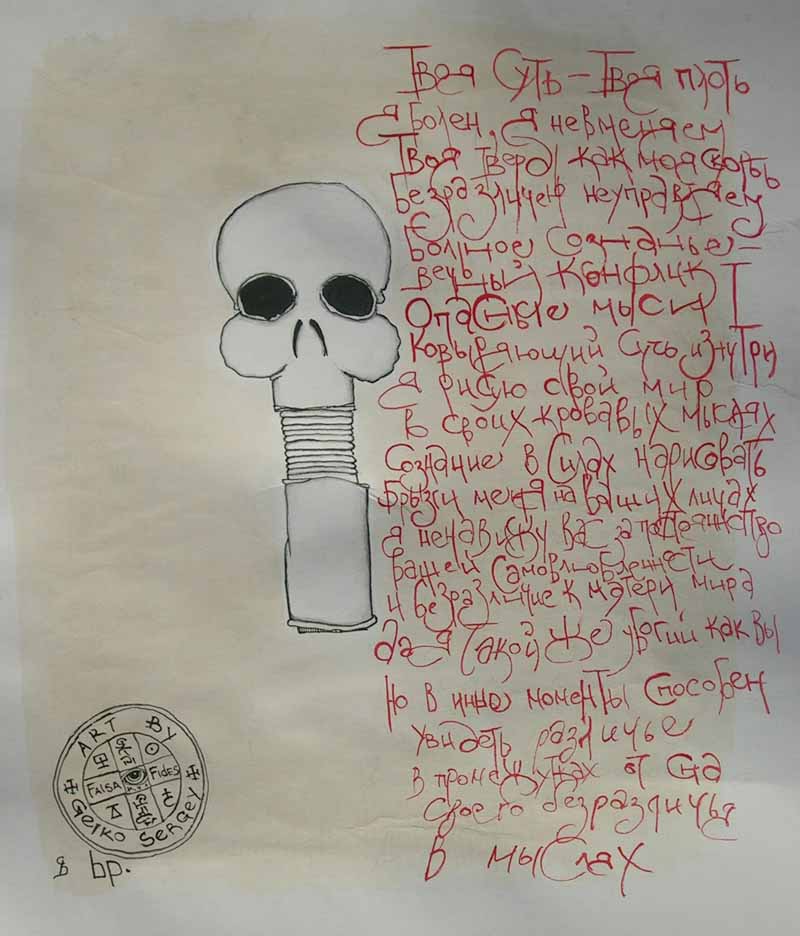 Твоя Суть – Твоя плоть
Я болен, я невменяем
Твоя твердь как моя скорбь
Безразличен неуправляем
Больное Сознанье –
вечный конфликт
Опасные мысли
Ковыряющий суть изнутри
Я рисую свой мир
в своих кровавых мыслях
Сознание в Силах нарисовать
Брызги меня на ваших лицах
Я ненавижу вас за постоянство
вашей самовлюбленности
и безразличие к матери мира
Да я такой же убогий как вы
Но в иные моменты способен
увидеть различье
в промежутках от сна
своего безразличья
В мыслях
ART BY
FALSA FIDES
GEIKO SERGEY
вр.